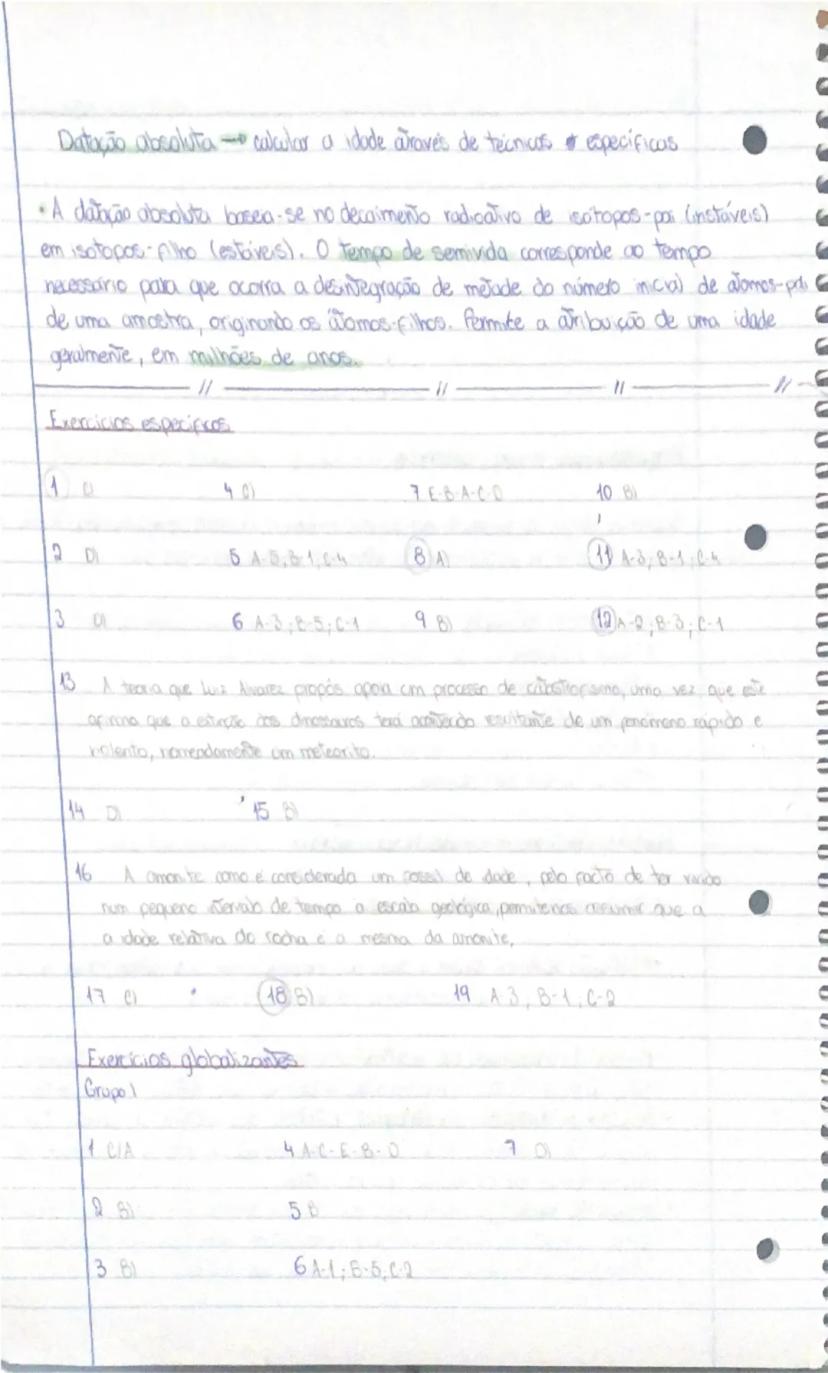 Datação absoluta → calcular a idade através de técnicas especificas
• A datação absoluta basea-se no decaimento radioativo de isótopos-pai (instáveis)
em isotopos-filho (estáveis). O tempo de semivida corresponde ao tempo
necessário para que ocorra a desintegração de metade do número inicial de átomos-pai
de uma amostra, originando os átomos-filhos. Permite a atribuição de uma idade
geralmente, em milhões de anos.
Exercicios especificos
1 4 7 E-B-A-C-D 10 B)
2 D) 5 A-5; B-1; C-4 8 A) 11 A-3; B-1; C-4
3 6 A-3; B-5; C-1 9 B) 12 A-2; B-3; C-1
13 A teoria que Luiz Alvarez propôs apoia um processo de catastrofismo, uma vez que este
afirma que a extinção dos dinossauros terá acontecido resultante de um fenómeno rápido e
violento, nomeadamente um meteorito.
14 D) 15 B)
16 A amonite como é considerada um fossil de idade, pelo facto de ter vivido
num pequeno intervalo de tempo a escala geológica, permitenos assumir que a
a idade relativa da rocha é a mesma da amonite,
17 C) 18 B) 19 A-3, B-1, C-2
Exercicios globalizantes
Grupo I
1 C/A 4 A-C-E-B-D 7
2 B) 5
3 B) 6 A-1; B-5; C-2